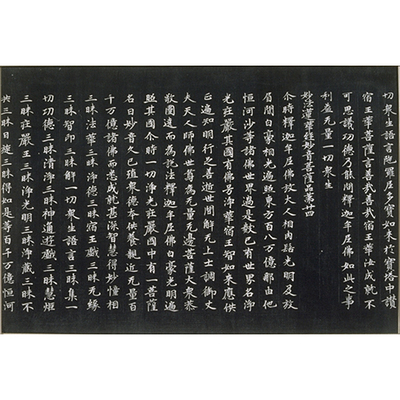 切衆生語言陀羅尼多寶如來於寶塔中讚
宿王華菩薩言善哉善哉宿王華汝成就不
可思議功德乃能問釋迦牟尼佛如此之事
利益无量一切衆生
妙法蓮華經妙音菩薩品第廿四
尒時釋迦牟尼佛放大人相肉髻光明及放
眉間白豪相光遍照東方百八万億那由他
恒河沙等諸佛世界過是數已有世界名淨
光莊嚴其國有佛号淨華宿王智如來應供
正遍知明行足善逝世間解无上士調御丈
夫天人師佛世尊為无量无邊菩薩大衆恭
敬圍遶而為說法釋迦牟尼佛白豪光明遍
照其國尒時一切淨光莊嚴國中有一菩薩
名曰妙音久已殖衆德本供養親近无量百
千万億諸佛而悉成就甚深智慧得妙幢相
三昧法華三昧淨德三昧宿王戲三昧无緣
三昧智印三昧解一切衆生語言三昧集一
切功德三昧清淨三昧神通遊戲三昧慧炬
三昧莊嚴王三昧淨光明三昧淨藏三昧不
共三昧日旋三昧得如是等百千万億恒河